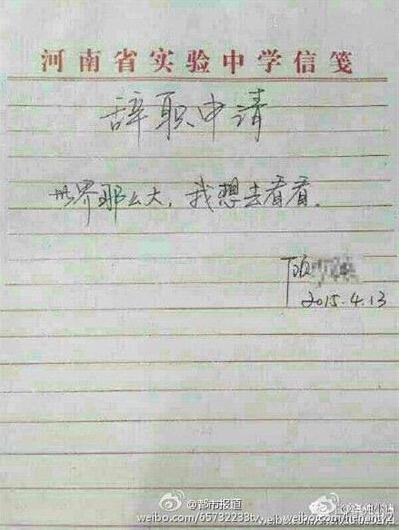 河南省实验中学信笺
辞职申请
世界那么大，我想去看看。
顾
2015.4.13
@都市报道
weibo.com/65732233tv